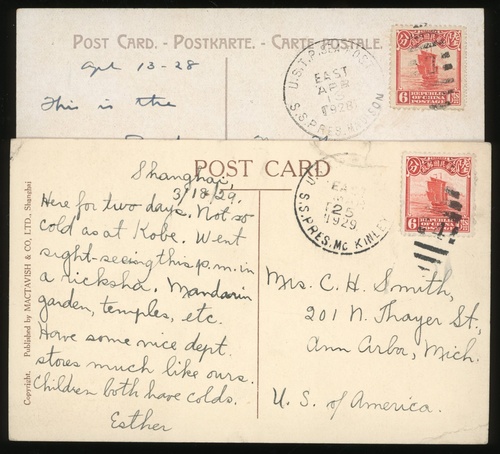 POST CARD. - POSTKARTE. - CARTE POSTALE.
Apl 13-28
This is the
U.S.T.P. SEAPOST
EAST
APR
1928
S.S. PRES. WILSON
6
REPUBLIC
OF CHINA
POSTAGE
6
POST CARD
Shanghai,
3/18/29.
Here for two days. Not so
cold as at Kobe. Went
sight-seeing this p.m. in
a ricksha. Mandarin
garden, temples, etc.
Have some nice dept.
stores much like ours.
Children both have colds.
Esther
Copyright. Published by MACTAVISH & CO., LTD., Shanghai
EAST
25
1929
S.S. PRES. Mc KINLEY
6
REPUBLIC
OF CHINA
POSTAGE
Mrs. C. H. Smith,
201 N. Thayer St.,
Ann Arbor, Mich.
U. S. of America.